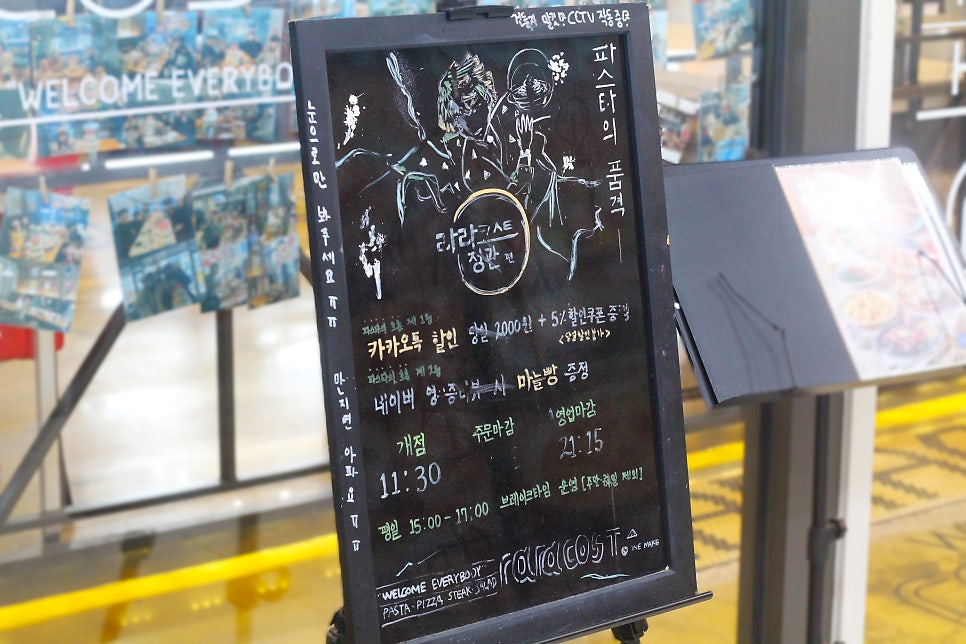 "WELCOME EVERYBO
눈으로만 봐주세요 ㅠㅠ
만지면 아파요 ㅠㅠ
CCTV 작동중
파스타의 품격
라라코스트
정관
카카오톡 할인 당일 2000원 + 5% 할인쿠폰 증정
네이버 시 마늘빵 증정
개점 주문마감 영업마감
11:30 21:15
평일 15:00-17:00 브레이크타임 운영 [주말·휴일 제외]
raracost
WE MAKE
"WELCOME EVERYBODY"
PASTA·PIZZA·STEAK·SALAD